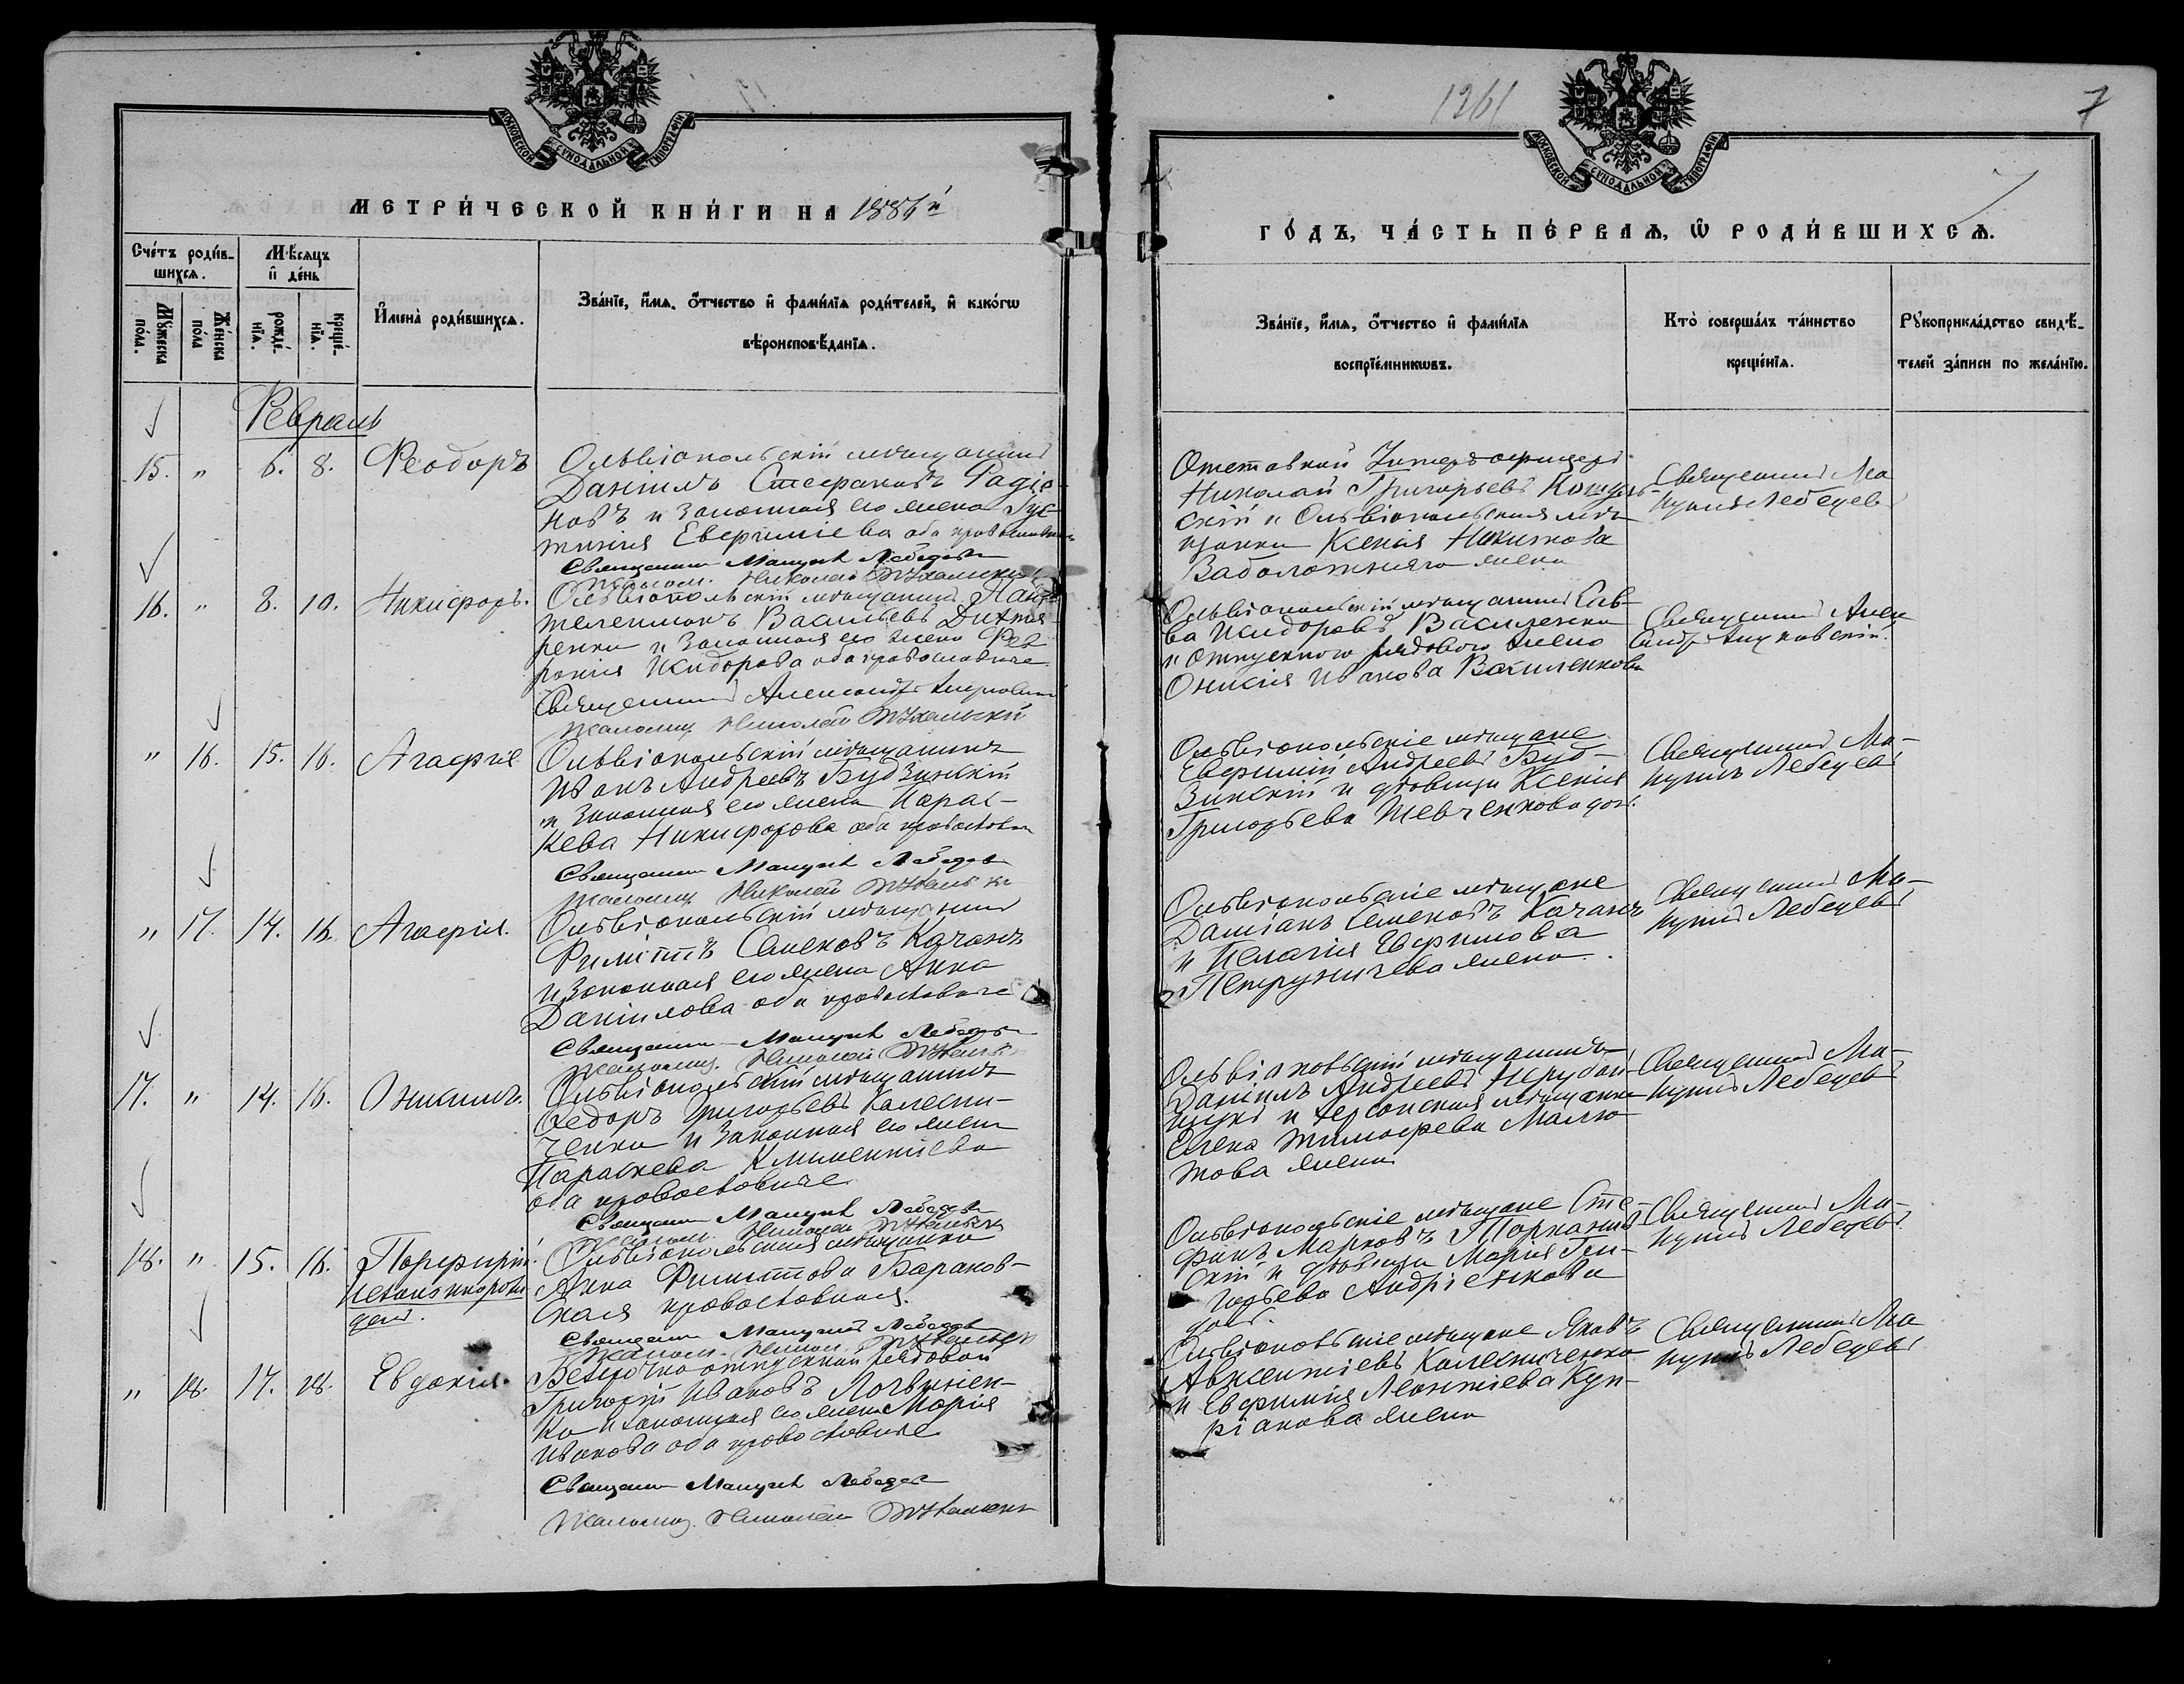 МОСКОВСКОЙ СѴНОДАЛЬНОЙ ТИПОГРАФІИ
МЕТРИ́ЧЕСКОЙ КНИ́ГИ НА 1886й
Сче́тъ роди́в-
шихсѧ.
Мѣ́сѧцъ
и҆ де́нь
Мꙋ́жеска
по́ла.
Же́нска
по́ла
рожде́-
нїѧ.
креще́-
нїѧ.
И҆мена̀ роди́вшихсѧ.
Зва́нїе, и҆́мѧ, ѻ҆́тчество и҆ фами́лїѧ роди́телей, и҆ како́гѡ
вѣроисповѣ́данїѧ.
Февраль
15. " 6. 8. Феодоръ
Ольвіопольскій мѣщанинъ
Даніилъ Стефановъ Радіо-
новъ и законная его жена Іус-
тинія Евфиміева оба православные
Священник Мануил Лебедев
Псаломщ. Николай
16. " 8. 10. Никифоръ.
Ольвіопольскій мѣщанинъ Пан-
телеимонъ Васильевъ Дитя
ренко и законная его жена Фев
ронія Исидорова оба православные
Священникъ Александр
Псаломщ Николай
" 16. 15. 16. Агафія
Ольвіопольскій мѣщанинъ
Иванъ Андреевъ Будзинскій
и законная его жена Парас-
кева Никифорова оба православн
Священник Мануил Лебедев
Псаломщ Николай
" 17. 14. 16. Агафія.
Ольвіопольскій мѣщанинъ
Филиппъ Семеновъ Качанъ
и законная его жена Анна
Даніилова оба православные
Священник Мануил Лебедев
Псаломщ. Николай
17. " 14. 16. Онисимъ.
Ольвіопольскій мѣщанинъ
Федоръ Григорьевъ Колесни-
ченко и законная его жена
Параскева Климентіева
оба православные
Священ Мануил Лебедев
Псалом. Николай
18. " 15. 16. Порфирій.
незаконнорож
ден.
Ольвіопольская мѣщанка
Анна Филиппова Баранов-
ская православная.
Священ Мануил Лебедев
Псалом. Никол.
" 18. 17. 18. Евдокія.
Безсрочно отпускной рядовой
Григорій Ивановъ Логвинен-
ко и законная его жена Марія
Иванова оба православные
Священ Мануил Лебедев
Псаломщ. Николай
1261
7
МОСКОВСКОЙ СѴНОДАЛЬНОЙ ТИПОГРАФІИ
7
ГО́ДЪ, ЧА́СТЬ ПЕ́РВАѦ, Ѡ҆ РОДИ́ВШИХСѦ.
Зва́нїе, и҆́мѧ, ѻ҆́тчество и҆ фами́лїѧ
воспрїе́мникѡвъ.
Кто̀ соверша́лъ та́инство
креще́нїѧ.
Рꙋкоприкла́дство свидѣ́-
телей за́писи по жела́нїю.
Отставной Унтеръ офицеръ
Николай Григорьевъ
скій и Ольвіопольская мѣ
щанка Ксенія Никитова
Заболотняго жена
Священникъ Ма
нуилъ Лебедев
Ольвіопольскій мѣщанинъ Сав-
ва Исидоровъ Василенко
и отпускного рядового жена
Онисія Иванова Василенкова
Священникъ Алек
сандр
Ольвіопольскіе мѣщане
Евфимій Андреевъ Буд-
зинскій и дѣвица Ксенія
Григорьева Шевченкова доч.
Священникъ Ма-
нуилъ Лебедевъ
Ольвіопольскіе мѣщане
Даміанъ Семеновъ Качанъ
и Пелагія Евфимова
Петруничева жена.
Священникъ Ма-
нуилъ Лебедевъ
Ольвіопольскій мѣщанинъ
Даніилъ Андреевъ Нерубай-
и Херсонская мѣщанка
Елена Тимофеева Малю
това жена
Священникъ Ма-
нуилъ Лебедевъ
Ольвіопольскіе мѣщане Сте-
фанъ Марковъ
скій и дѣвица Марія Гри-
горьева Андріенкова
доч.
Священникъ Ма-
нуилъ Лебедевъ
Ольвіопольскіе мѣщане Яковъ
Авксентіевъ Колесниченко
и Евфимія Леонтіева Куп-
ріанова жена
Священникъ Ма
нуилъ Лебедевъ